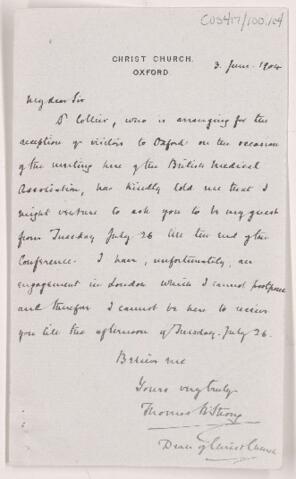 CUS417/100/104
CHRIST CHURCH.
OXFORD.
3. June. 1904
My dear Sir
Dr Collier, who is arranging for the
reception of visitors to Oxford on the occasion
of the meeting here of the British Medical
Association, has kindly told me that I
might venture to ask you to be my guest
from Tuesday July. 26 till the end of the
Conference. I have, unfortunately, an
engagement in London which I cannot postpone
and therefore I cannot be here to receive
you till the afternoon of Tuesday. July 26.
Believe me
Yours very truly
Thomas B. Strong
Dean of Christ Church